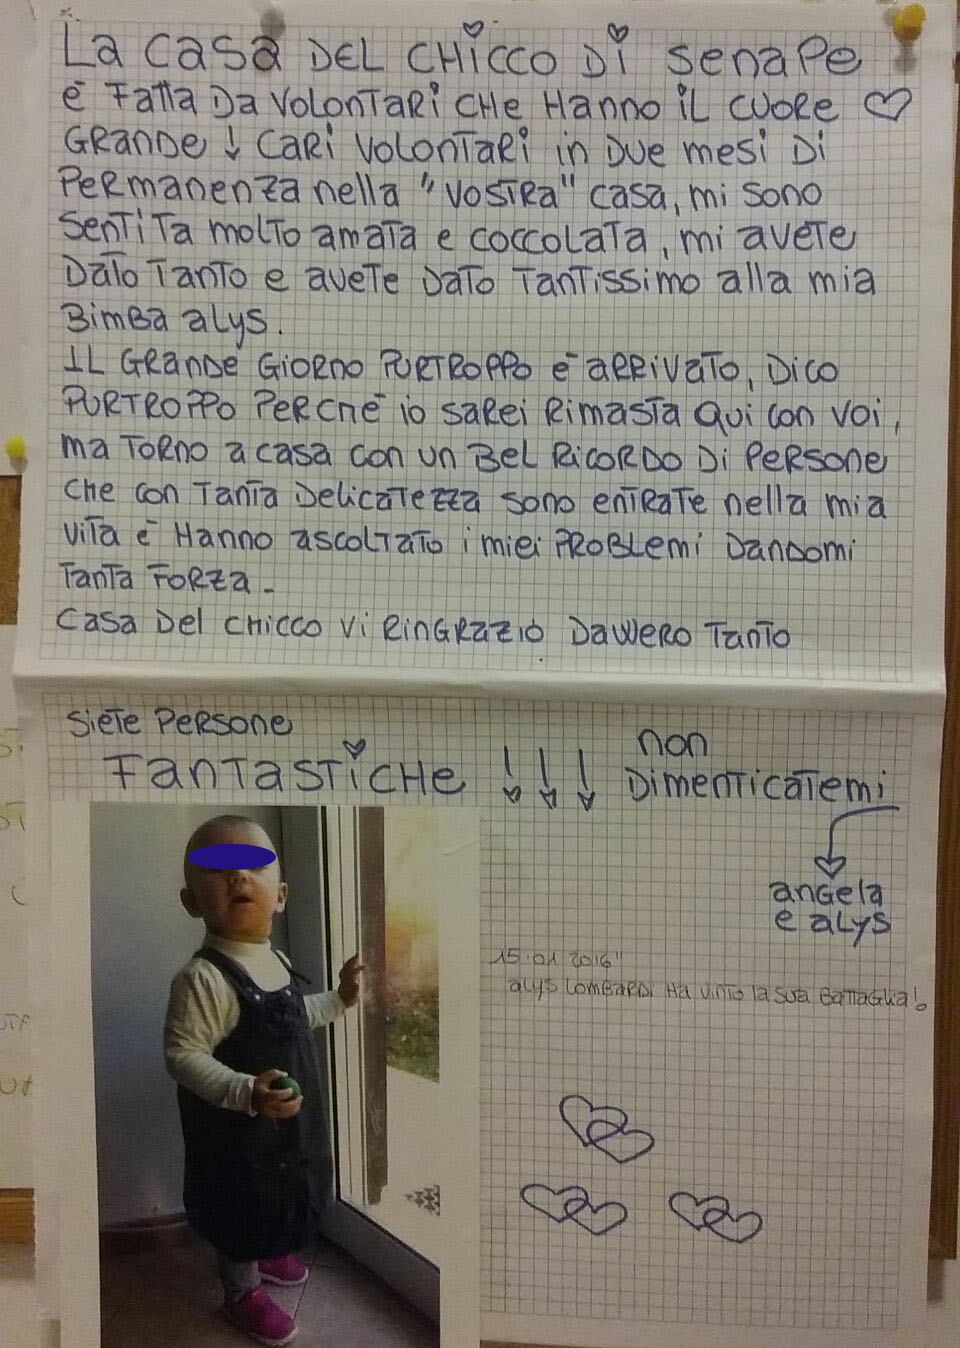 La casa DEL CHicco Di senape
è Fatta Da volontari che Hanno il cuore
Grande ! Cari volontari in due mesi di
Permanenza nella "vostra" casa, mi sono
sentita molto amata e coccolata, mi avete
Dato tanto e avete Dato tantissimo alla mia
Bimba alys.
Il Grande Giorno Purtroppo è arrivato, Dico
Purtroppo Perchè io sarei rimasta qui con voi,
ma torno a casa con un Bel ricordo di Persone
che con tanta Delicatezza sono entrate nella mia
vita è Hanno ascoltato i miei Problemi Dandomi
tanta Forza -
Casa Del Chicco vi ringrazio Davvero tanto
siete Persone
Fantastiche !!!
non
Dimenticatemi
angela
e alys
15.01 2016"
alys Lombardi Ha vinto la sua Battaglia!